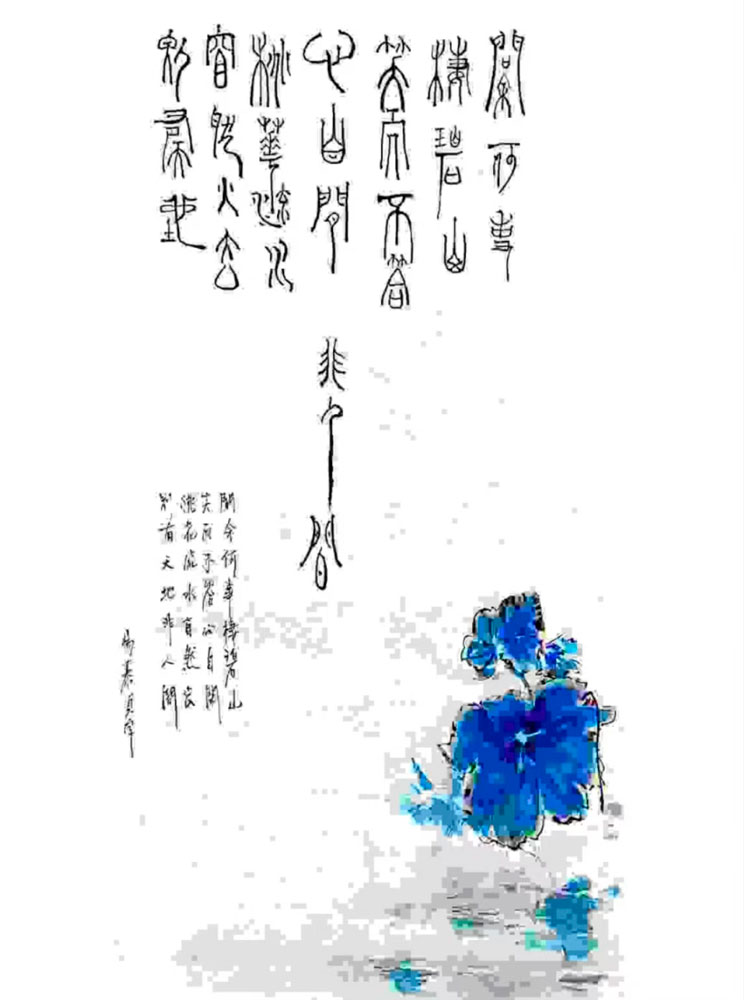 問余何事
棲碧山
笑而不答
心自閒
桃華流水
窅然去
別有天地
非人間
問余何事棲碧山
笑而不答心自閑
桃花流水窅然去
別有天地非人間